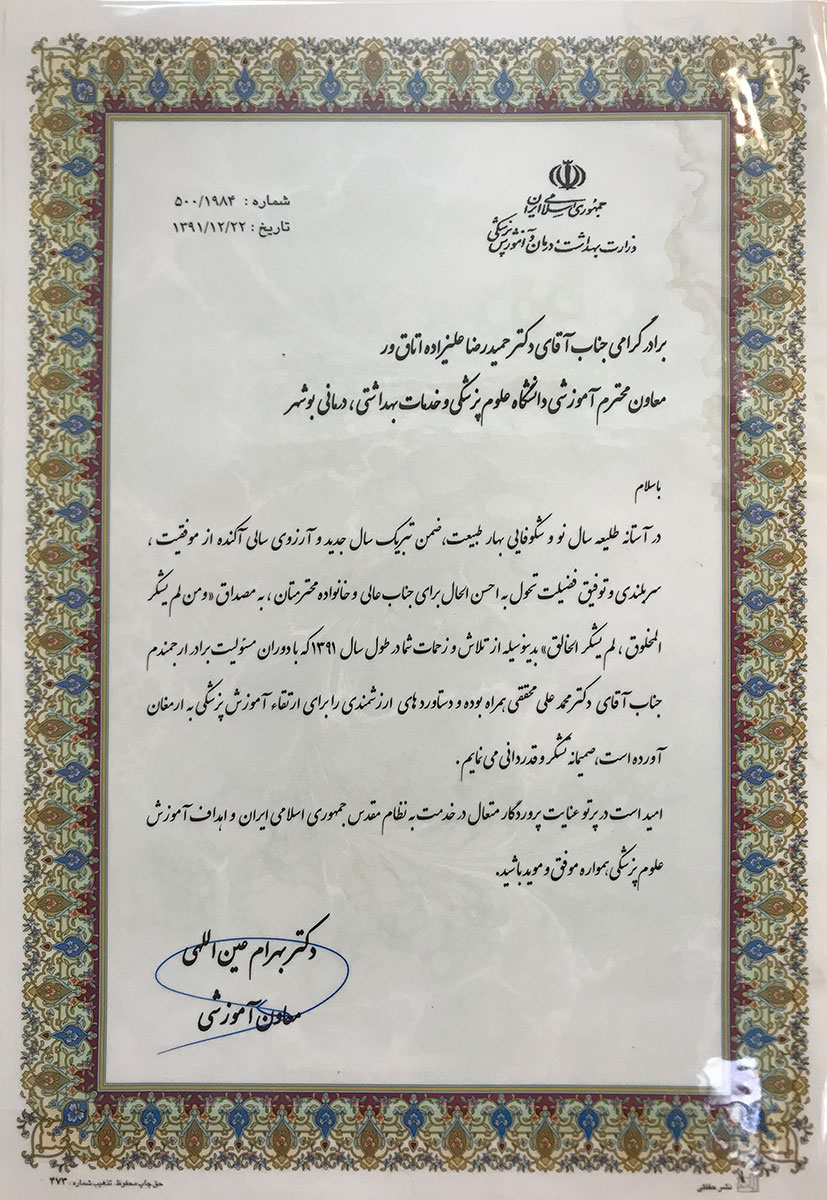 جمهوری اسلامی ایران
وزارت بهداشت، درمان و آموزش پزشکی
شماره : ۵۰۰/۱۹۸۴
تاریخ : ۱۳۹۱/۱۲/۲۲
برادر گرامی جناب آقای دکتر حمیدرضا علیزاده اتاق ور
معاون محترم آموزشی دانشگاه علوم پزشکی و خدمات بهداشتی ، درمانی بوشهر
باسلام
در آستانه طلیعه سال نو و شکوفایی بهار طبیعت، ضمن تبریک سال جدید و آرزوی سالی آکنده از موفقیت ،
سربلندی و توفیق فضیلت تحول به احسن الحال برای جناب عالی و خانواده محترمتان ، به مصداق «ومن لم یشکر
المخلوق ، لم یشکر الخالق» بدینوسیله از تلاش و زحمات شما در طول سال ۱۳۹۱ که با دوران مسئولیت برادر ارجمندم
جناب آقای دکتر محمد علی محققی همراه بوده و دستاورد های ارزشمندی را برای ارتقاء آموزش پزشکی به ارمغان
آورده است، صمیمانه تشکر و قدردانی می نمایم .
امید است در پرتو عنایت پروردگار متعال در خدمت به نظام مقدس جمهوری اسلامی ایران و اهداف آموزش
علوم پزشکی همواره موفق و موید باشید.
دکتر بهرام عین اللهی
معاون آموزشی
نشر حقانی
حق چاپ محفوظ. تذهیب شماره: ۴۷۳